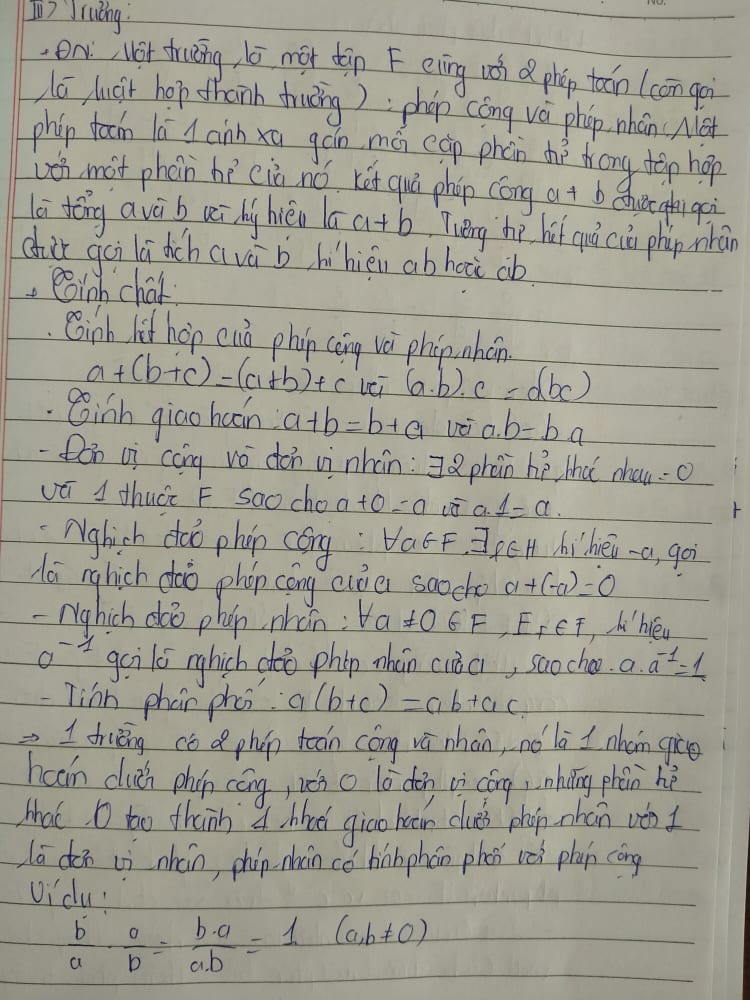 III> Trường:
. ĐN: Một trường là một tập F cùng với 2 phép toán (còn gọi
là luật hợp thành trường) : phép cộng và phép nhân. Một
phép toán là 1 ánh xạ gán mỗi cặp phần tử trong tập hợp
với một phần tử của nó. Kết quả phép cộng a + b được gọi
là tổng a và b và ký hiệu là a + b. Tương tự, kết quả của phép nhân
được gọi là tích a và b, kí hiệu ab hoặc a.b.
+ Tính chất:
. Tính kết hợp của phép cộng và phép nhân.
a + (b+c) = (a+b) + c và (a.b).c = a(bc)
. Tính giao hoán : a+b = b+a và a.b = b.a
- Đơn vị cộng và đơn vị nhân : ∃ 2 phần tử khác nhau = 0
và 1 thuộc F sao cho a + 0 = a và a.1 = a.
- Nghịch đảo phép cộng : ∀a ∈ F, ∃ kí hiệu -a, gọi
là nghịch đảo phép cộng của a sao cho a + (-a) = 0
- Nghịch đảo phép nhân : ∀a ≠ 0 ∈ F, kí hiệu
a⁻¹ gọi là nghịch đảo phép nhân của a, sao cho a.a⁻¹ = 1
- Tính phân phối : a(b+c) = ab + ac.
⇒ 1 trường có 2 phép toán cộng và nhân, nó là 1 nhóm giao
hoán dưới phép cộng, với 0 là đơn vị cộng, những phần tử
khác 0 tạo thành 1 giao hoán dưới phép nhân với 1
là đơn vị nhân, phép nhân có tính phân phối với phép cộng
Ví dụ:
b/a . a/b = b.a/a.b = 1 (a,b ≠ 0)